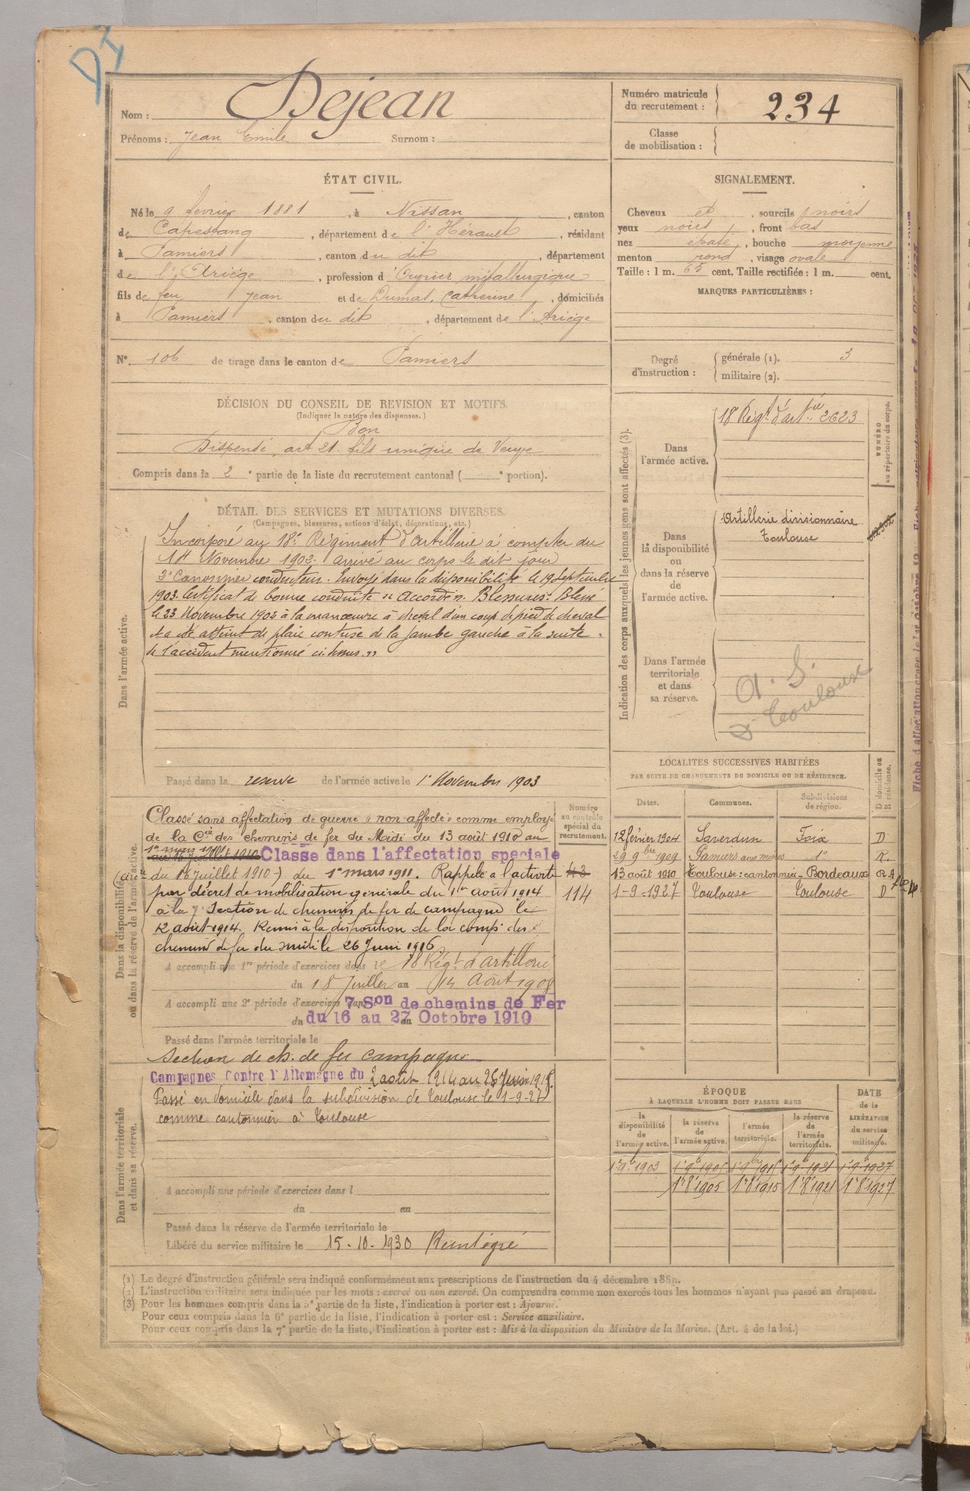 DI
Nom : Dejean
Prénoms : Jean Emile Surnom :
Numéro matricule du recrutement : 234
Classe de mobilisation :
ÉTAT CIVIL.
Né le 9 février 1881, à Nissan, canton
de Capestang, département de l'Hérault, résidant
à Pamiers, canton du dit, département
de l'Ariège, profession d'Ouvrier métallurgique
fils de feu Jean et de Dumas, Catherine, domiciliés
à Pamiers, canton du dit, département de l'Ariège
N° 106 de tirage dans le canton de Pamiers
SIGNALEMENT.
Cheveux et, sourcils noirs
yeux noirs, front bas
nez épaté, bouche moyenne
menton rond, visage ovale
Taille : 1 m. 65 cent. Taille rectifiée : 1 m. cent.
MARQUES PARTICULIÈRES :
Degré d'instruction : générale (1). 3
militaire (2).
DÉCISION DU CONSEIL DE REVISION ET MOTIFS.
(Indiquer la nature des dispenses.)
Bon
Dispensé, art 21 fils unique de Veuve
Compris dans la 2e partie de la liste du recrutement cantonal ( e portion).
DÉTAIL DES SERVICES ET MUTATIONS DIVERSES.
(Campagnes, blessures, actions d'éclat, décorations, etc.)
Dans l'armée active.
Incorporé au 18e Régiment d'artillerie à compter du
14 Novembre 1902. arrivé au corps le dit jour
2e Canonnier conducteur. Envoyé dans la disponibilité le 19 Septembre
1903. Certificat de bonne conduite "Accordé". Blessures: Blessé
le 23 Novembre 1902 à la manœuvre à cheval d'un coup de pied de cheval
a été atteint de plaie contuse de la jambe gauche à la suite
de l'accident mentionné ci-dessus."
Passé dans la réserve de l'armée active le 1er Novembre 1903
Indication des corps auxquels les jeunes gens sont affectés (3).
NUMÉRO au répertoire du corps.
Dans l'armée active.
18 Régt d'artie 2623
Dans la disponibilité ou dans la réserve de l'armée active.
Artillerie divisionnaire
Toulouse
Dans l'armée territoriale et dans sa réserve.
A. S.
D Toulouse
Dans la disponibilité ou dans la réserve de l'armée active.
Numéro au contrôle spécial du recrutement.
114
Classé sans affectation de guerre "non affecté" comme employé
de la Cie des chemins de fer du Midi du 13 août 1910 au
1er mars 1911 Classé dans l'affectation spéciale
(du 1er juillet 1910) du 1er mars 1911. Rappelé à l'activité
par décret de mobilisation générale du 1er août 1914
à la 7e Section de chemins de fer de campagne le
2 août 1914. Remis à la disposition de la comp. des
chemins de fer du midi le 26 Juin 1916
A accompli une 1re période d'exercices dans le 18 Régt d'Artillerie
du 18 Juillet au 14 Août 1908
A accompli une 2e période d'exercices dans 7 Son de chemins de Fer
du 16 au 27 Octobre 1910
Passé dans l'armée territoriale le
Section de ch. de fer campagne
Dans l'armée territoriale et dans sa réserve.
Campagnes Contre l'Allemagne du 2 août 1914 au
Passé en domicile dans la subdivision de Toulouse le 1-9-27
comme cantonnier à Toulouse
A accompli une période d'exercices dans l
du au
Passé dans la réserve de l'armée territoriale le
Libéré du service militaire le 15-10-1930 Réintégré
LOCALITÉS SUCCESSIVES HABITÉES
PAR SUITE DE CHANGEMENTS DE DOMICILE OU DE RÉSIDENCE.
Dates. Communes. Subdivisions de région. D domicile ou R résidence.
12 février 1904 Saverdun Foix D
29 9bre 1909 Pamiers aux mines do R.
13 août 1910 Toulouse: cantonnier Bordeaux
1-9-1927 Toulouse Toulouse D
ÉPOQUE
À LAQUELLE L'HOMME DOIT PASSER DANS
DATE de la LIBÉRATION du service militaire.
la disponibilité de l'armée active. la réserve de l'armée active. l'armée territoriale. la réserve de l'armée territoriale.
1er 9bre 1903 1er 9bre 1905 1er 9bre 1915 1er 9bre 1921 1er 9bre 1927
1er 8bre 1905 1er 8bre 1915 1er 8bre 1921 1er 8bre 1927
(1) Le degré d'instruction générale sera indiqué conformément aux prescriptions de l'instruction du 4 décembre 1889.
(2) L'instruction militaire sera indiquée par les mots : exercé ou non exercé. On comprendra comme non exercés tous les hommes n'ayant pas passé au drapeau.
(3) Pour les hommes compris dans la 5e partie de la liste, l'indication à porter est : Ajourné.
Pour ceux compris dans la 6e partie de la liste, l'indication à porter est : Service auxiliaire.
Pour ceux compris dans la 7e partie de la liste, l'indication à porter est : Mis à la disposition du Ministre de la Marine. (Art. 4 de la loi.)